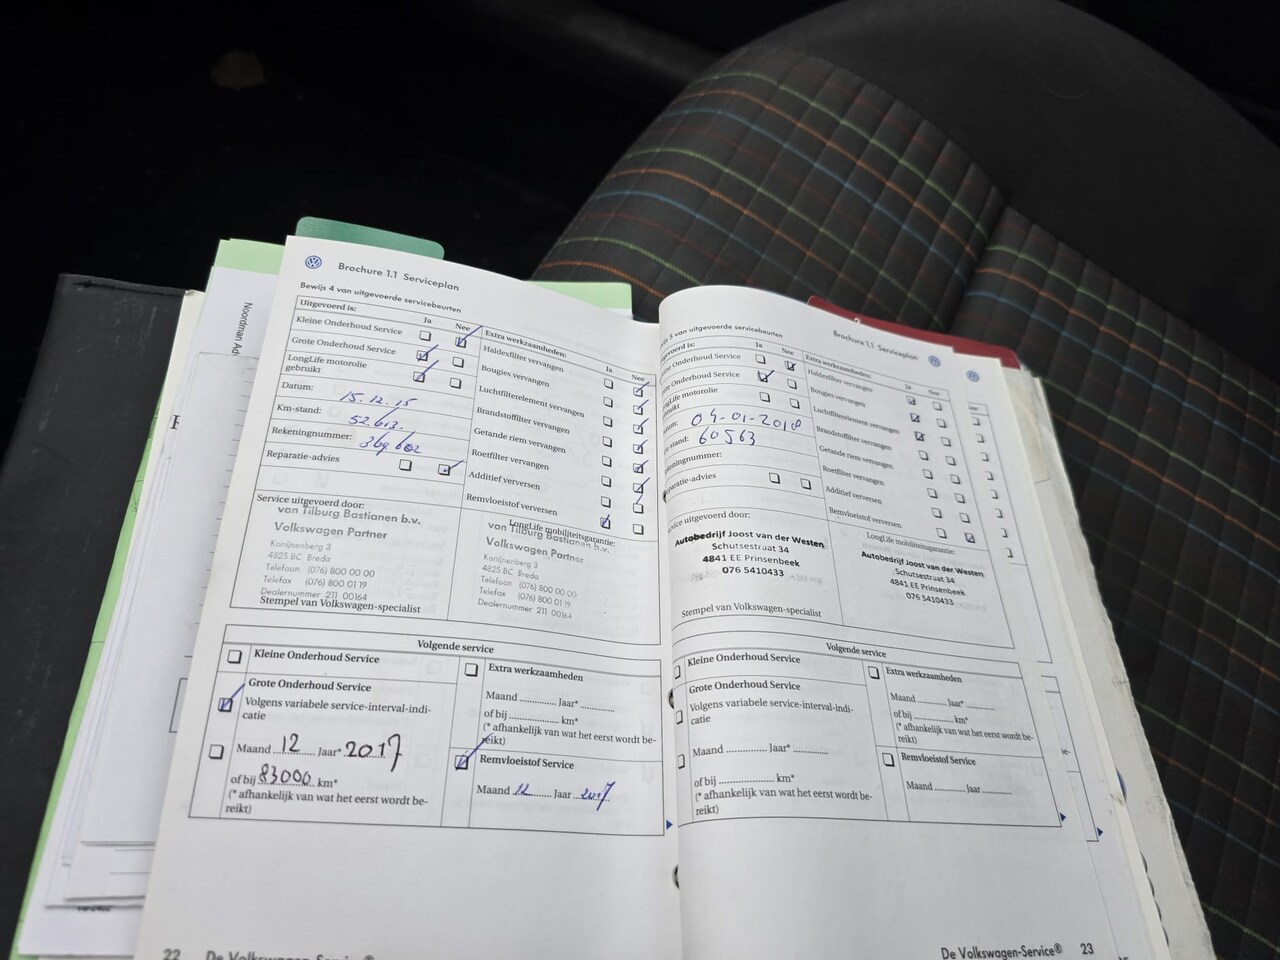 Brochure 1.1 Serviceplan
Bewijs 4 van uitgevoerde servicebeurten
Uitgevoerd is:
Ja Nee
Kleine Onderhoud Service
Grote Onderhoud Service
LongLife motorolie
gebruikt
Datum: 15.12.15
Km-stand:
Rekeningnummer: 369 602
Reparatie-advies
Extra werkzaamheden:
Ja Nee
Haldexfilter vervangen
Bougies vervangen
Luchtfilterelement vervangen
Brandstoffilter vervangen
Getande riem vervangen
Roetfilter vervangen
Additief verversen
Remvloeistof verversen
Service uitgevoerd door:
van Tilburg Bastianen b.v.
Volkswagen Partner
Konijnenberg 3
4825 BC Breda
Telefoon (076) 800 00 00
Telefax (076) 800 01 19
Dealernummer 211 00164
Stempel van Volkswagen-specialist
LongLife mobiliteitsgarantie:
van Tilburg Bastianen b.v.
Volkswagen Partner
Konijnenberg 3
4825 BC Breda
Telefoon (076) 800 00 00
Telefax (076) 800 01 19
Dealernummer 211 00164
Volgende service
Kleine Onderhoud Service
Grote Onderhoud Service
Volgens variabele service-interval-indi-
catie
Maand 12 Jaar* 2017
of bij 83000 km*
(* afhankelijk van wat het eerst wordt be-
reikt)
Extra werkzaamheden
Maand Jaar*
of bij km*
(* afhankelijk van wat het eerst wordt be-
reikt)
Remvloeistof Service
Maand 12 Jaar 2017
22 De Volkswagen-Service®
Brochure 1.1 Serviceplan
5 van uitgevoerde servicebeurten
Ja Nee
Onderhoud Service
Onderhoud Service
04-01-2018
60563
Extra werkzaamheden:
Ja Nee
Haldexfilter vervangen
Bougies vervangen
Luchtfilterelement vervangen
Brandstoffilter vervangen
Getande riem vervangen
Roetfilter vervangen
Additief verversen
Remvloeistof verversen
uitgevoerd door:
Autobedrijf Joost van der Westen
Schutsestraat 34
4841 EE Prinsenbeek
076 5410433
Stempel van Volkswagen-specialist
LongLife mobiliteitsgarantie:
Autobedrijf Joost van der Westen
Schutsestraat 34
4841 EE Prinsenbeek
076 5410433
Volgende service
Kleine Onderhoud Service
Grote Onderhoud Service
Volgens variabele service-interval-indi-
catie
Maand Jaar*
of bij km*
(* afhankelijk van wat het eerst wordt be-
reikt)
Extra werkzaamheden
Maand Jaar*
of bij km*
(* afhankelijk van wat het eerst wordt be-
reikt)
Remvloeistof Service
Maand Jaar
De Volkswagen-Service® 23